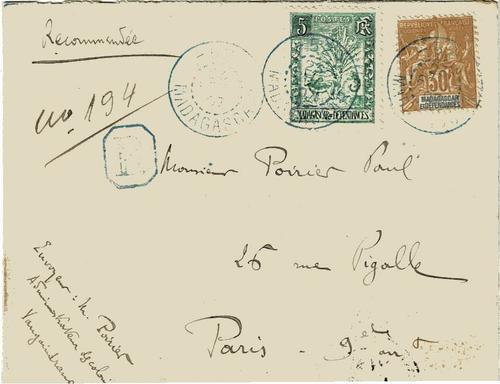 Recommandée
no. 194
MADAGASCAR
POSTES
5
MADAGASCAR ET DÉPENDANCES
RÉPUBLIQUE FRANÇAISE
30
MADAGASCAR
ET DÉPENDANCES
R
Monsieur Poirier Paul
26 rue Pigalle
Paris - 9e
Envoyeur : M. Poirier